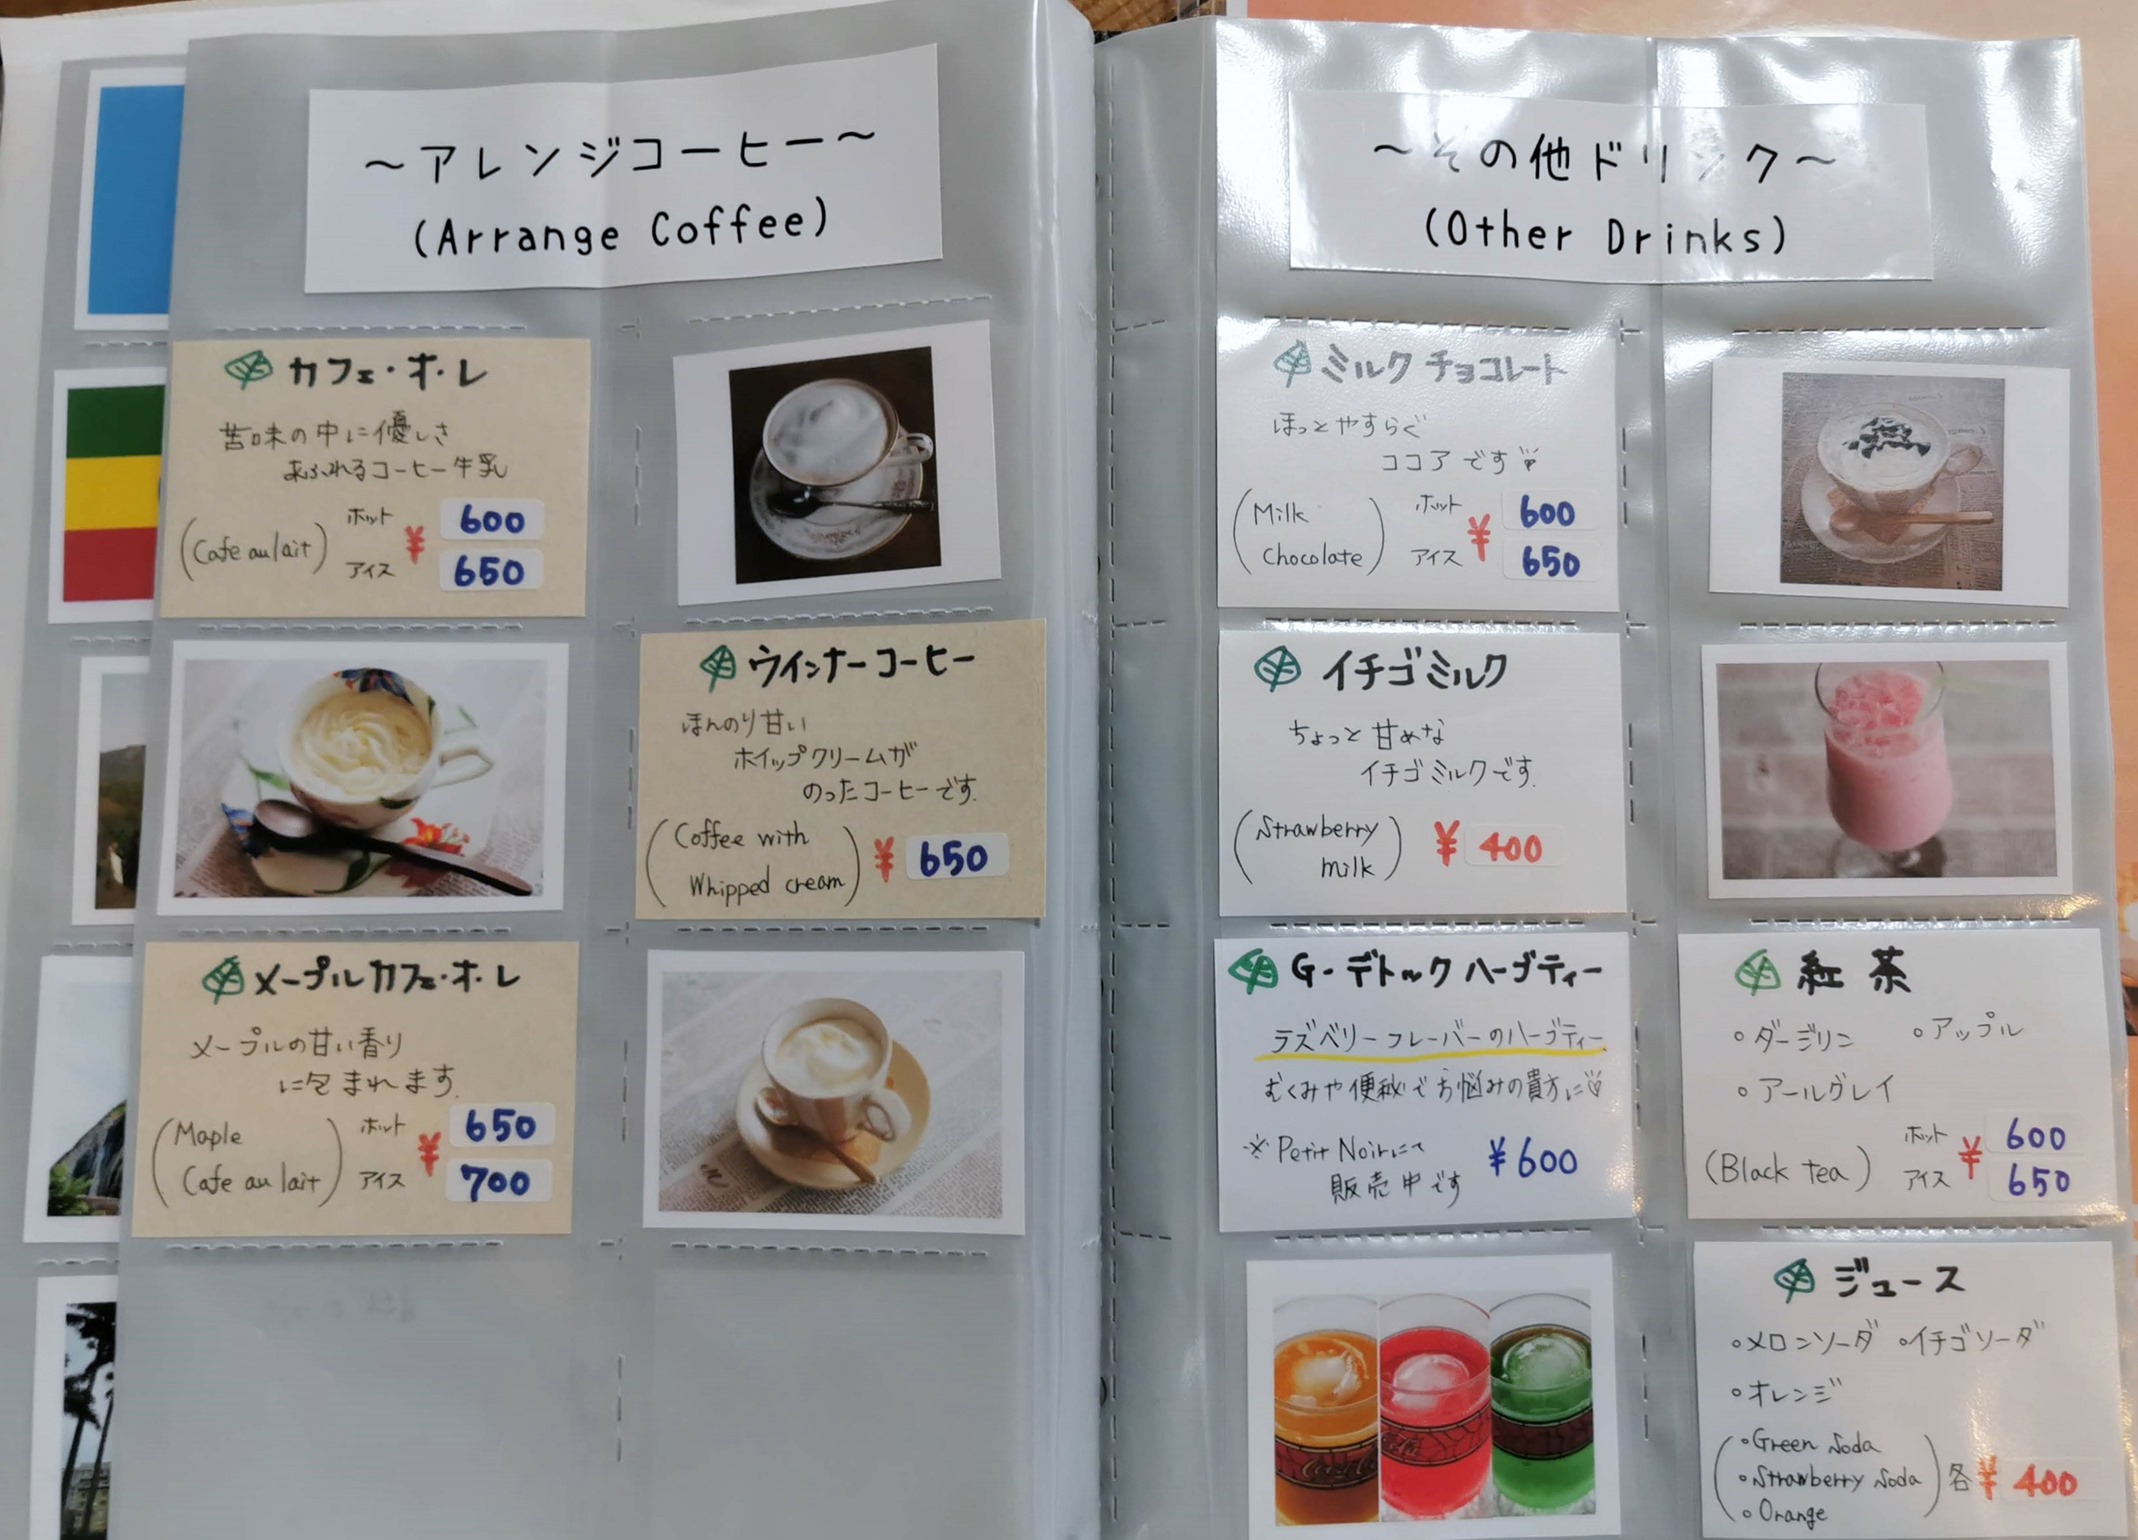 ～アレンジコーヒー～
(Arrange Coffee)
カフェ・オ・レ
苦味の中に優しさ
あふれるコーヒー牛乳
(Cafe au lait)
ホット ¥ 600
アイス 650
ウインナーコーヒー
ほんのり甘い
ホイップクリームが
のったコーヒーです.
(Coffee with
Whipped cream)
¥ 650
メープルカフェ・オ・レ
メープルの甘い香り
に包まれます.
(Maple
Cafe au lait)
ホット ¥ 650
アイス 700
～その他ドリンク～
(Other Drinks)
ミルクチョコレート
ほっとやすらぐ
ココアです
(Milk
Chocolate)
ホット ¥ 600
アイス 650
イチゴミルク
ちょっと甘めな
イチゴミルクです.
(Strawberry
milk)
¥ 400
G・デトックハーブティー
ラズベリーフレーバーのハーブティー
むくみや便秘でお悩みの貴方に♡
※Petit Noirにて
販売中です
¥600
紅茶
○ダージリン ○アップル
○アールグレイ
(Black tea)
ホット ¥ 600
アイス 650
ジュース
○メロンソーダ ○イチゴソーダ
○オレンジ
(○Green Soda
○Strawberry Soda
○Orange)
各¥ 400